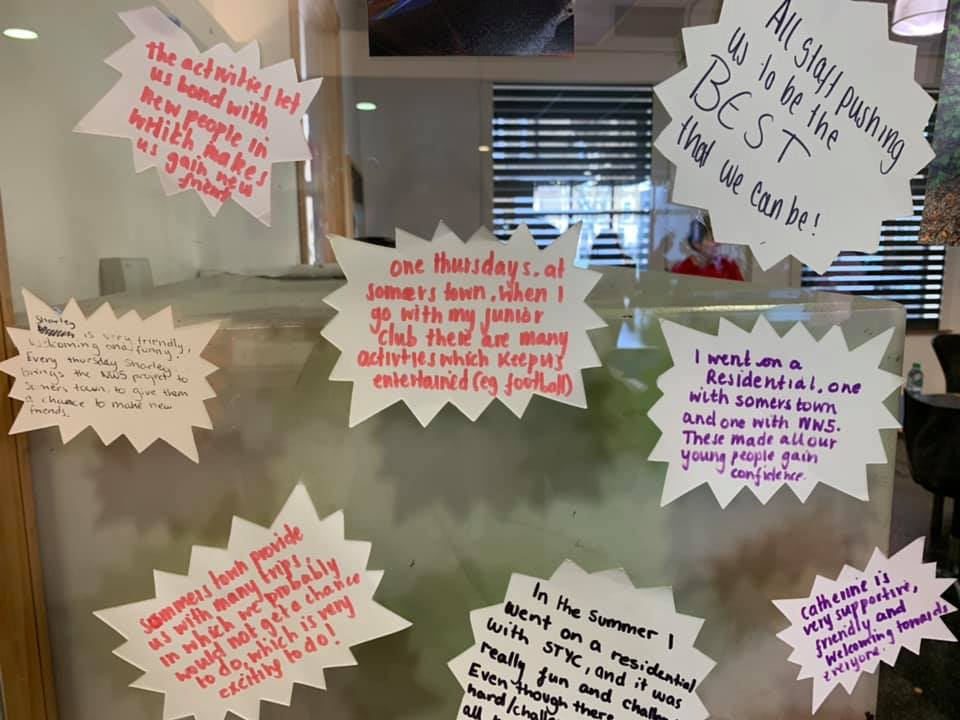 The activities let
us bond with
new people in
which makes
us gain new
friend
All staff pushing
us to be the
BEST
that we can be!
one thursdays. at
somers town, when I
go with my junior
club there are many
activities which keep us
entertained (eg football)
Sharley
is very friendly,
welcoming and funny.
Every thursday Sharley
brings the NW5 project to
somers town, to give them
a chance to make new
friends.
I went on a
Residential, one
with somers town
and one with NW5.
These made all our
young people gain
confidence.
sommers town provide
us with many trips
in which we probably
would not get a chance
to do, which is very
exciting to do!
In the summer I
went on a residential
with STYC, and it was
really fun and
Even though there
hard/
all
Catherine is
very supportive,
friendly and
welcoming towards
everyone.